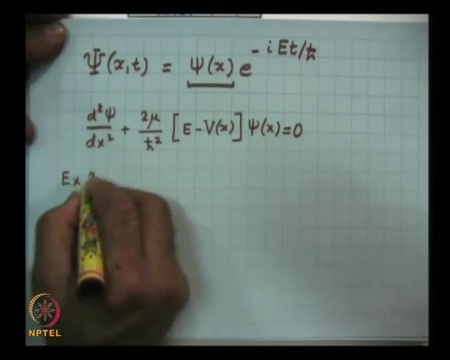 Ψ(x,t) = ψ(x) e^{-iEt/ħ}
d²ψ/dx² + 2μ/ħ² [E - V(x)] ψ(x) = 0
Ex
NPTEL